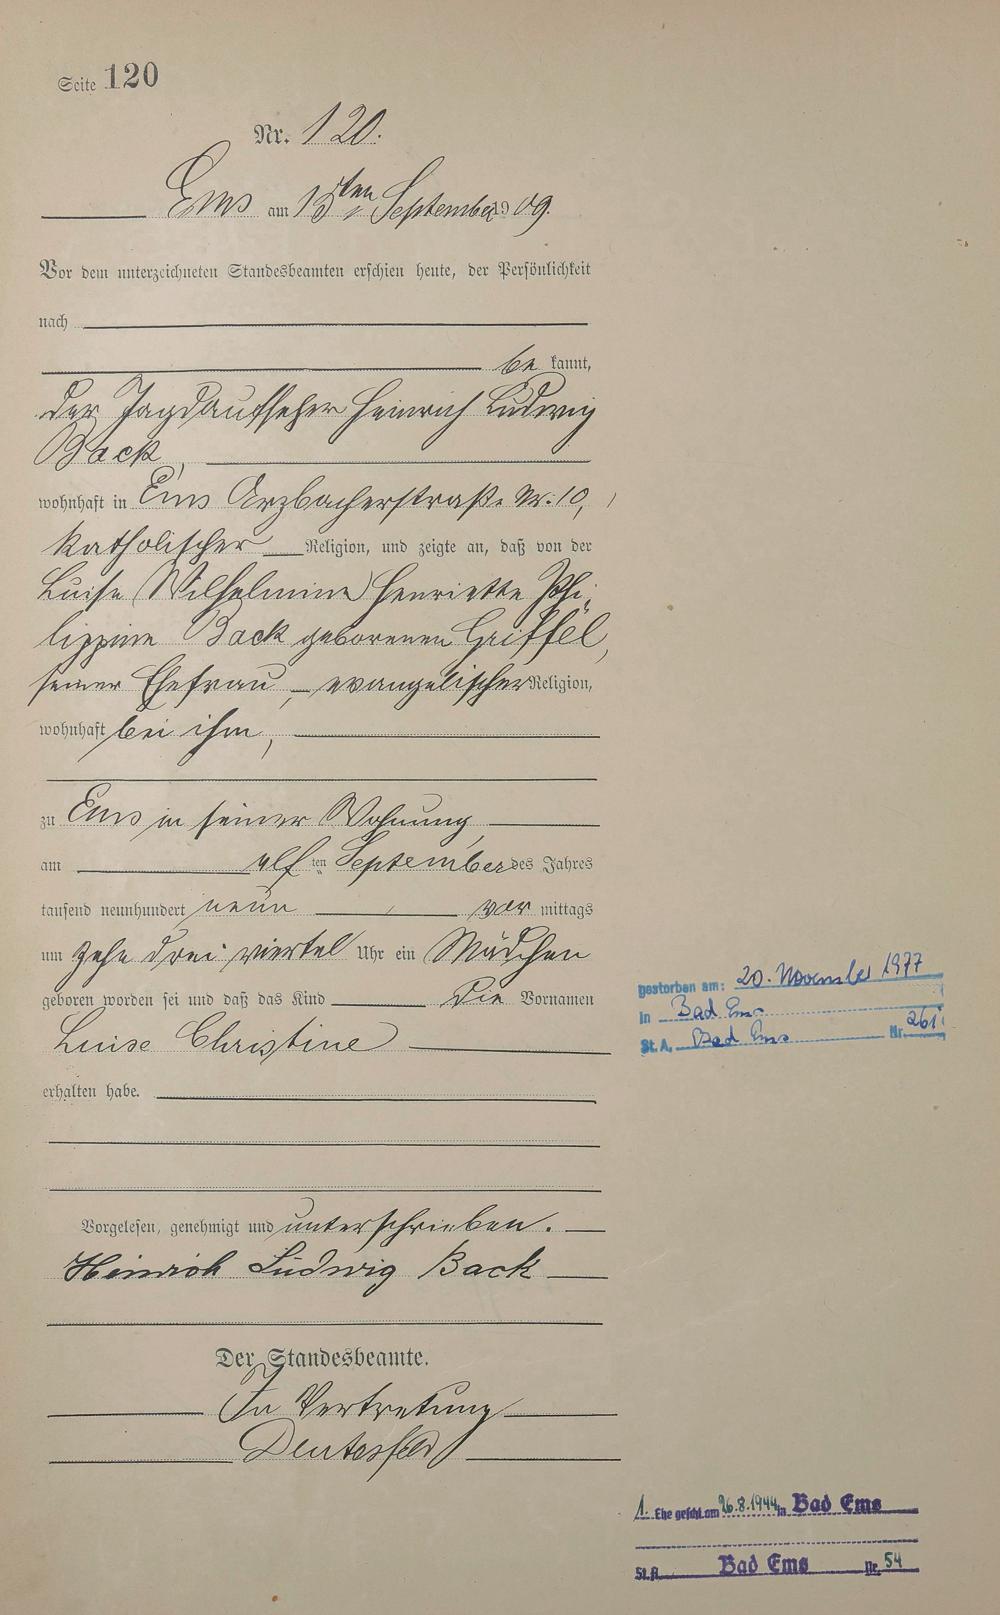 Seite 120
Nr. 120.
Ems am 15ten September 1909.
Vor dem unterzeichneten Standesbeamten erschien heute, der Persönlichkeit
nach
be kannt,
der Jagdaufseher Heinrich Ludwig
Back,
wohnhaft in Ems Arzbacherstraße Nr. 10,
katholischer Religion, und zeigte an, daß von der
Luise (Wilhelmine) Henriette Phi-
lippine Back geborenen Griffel,
seiner Ehefrau, evangelischer Religion,
wohnhaft bei ihm,
zu Ems in seiner Wohnung
am elf ten September des Jahres
tausend neunhundert neun vor mittags
um zehn drei viertel Uhr ein Mädchen
geboren worden sei und daß das Kind die Vornamen
Luise Christine
erhalten habe.
Vorgelesen, genehmigt und unterschrieben.
Heinrich Ludwig Back
Der Standesbeamte.
In Vertretung
gestorben am: 20. November 1977
in Bad Ems
St. A. Bad Ems Nr. 261
1. Ehe geschl. am 26.8.1944 in Bad Ems
St. A. Bad Ems Nr. 54